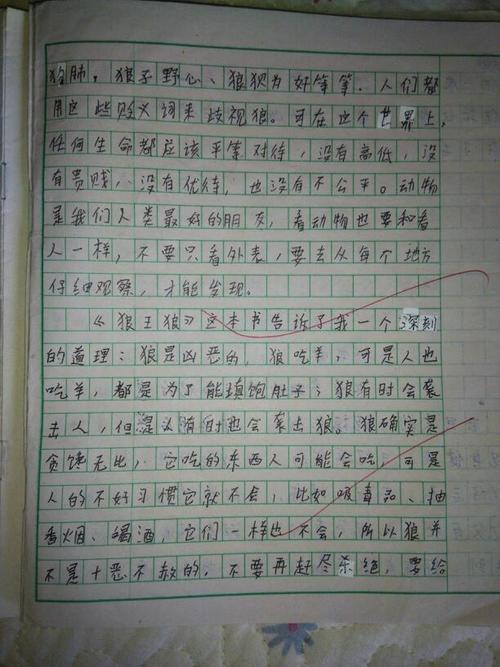 狼肺，狼子野心、狼狈为奸等等，人们都
用这些贬义词来歧视狼。可在这个世界上，
任何生命都应该平等对待，没有高低，没
有贵贱，没有优待，也没有不公平。动物
是我们人类最好的朋友，看动物也要和看
人一样，不要只看外表，要去从每个地方
仔细观察，才能发现。
《狼王狼》这本书告诉了我一个深刻
的道理：狼是凶恶的，狼吃羊，可是人也
吃羊，都是为了能填饱肚子；狼有时会袭
击人，但是人有时也会袭击狼。狼确实是
贪馋无比，它吃的东西人可能会吃，可是
人的不好习惯它就不会，比如吸毒品、抽
香烟、喝酒，它们一样也不会，所以狼并
不是十恶不赦的，不要再赶尽杀绝，要给